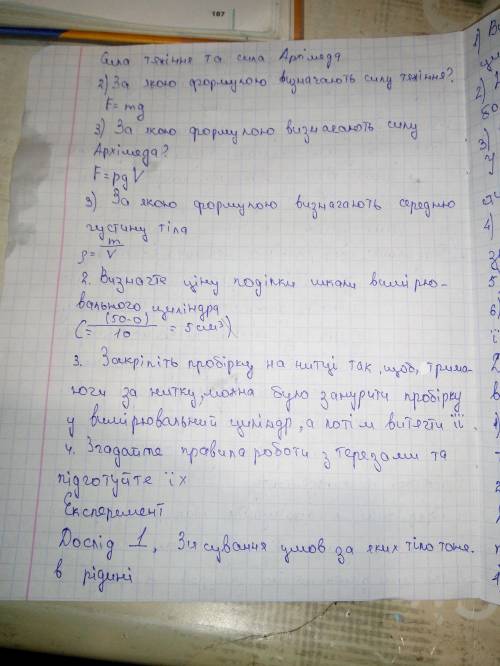 187
Сила тяжіння та сила Архімеда
2) За якою формулою визначають силу тяжіння?
F = mg
3) За якою формулою визначають силу
Архімеда?
F = ρgV
3) За якою формулою визначають середню
густину тіла
ρ = m/V
2. Визначте ціну поділки шкали вимірю-
вального циліндра
C = (50-0)/10 = 5 см³)
3. Закріпіть пробірку на нитці так, щоб, трима-
ючи за нитку, можна було занурити пробірку
у вимірювальний циліндр, а потім витягти її
4. Згадайте правила роботи з терезами та
підготуйте їх
Експеремент
Дослід 1, Зя сування умов за яких тіло тоне
в рідині
1) В
ци
2)
бо
3)
4)
5
6)
ї